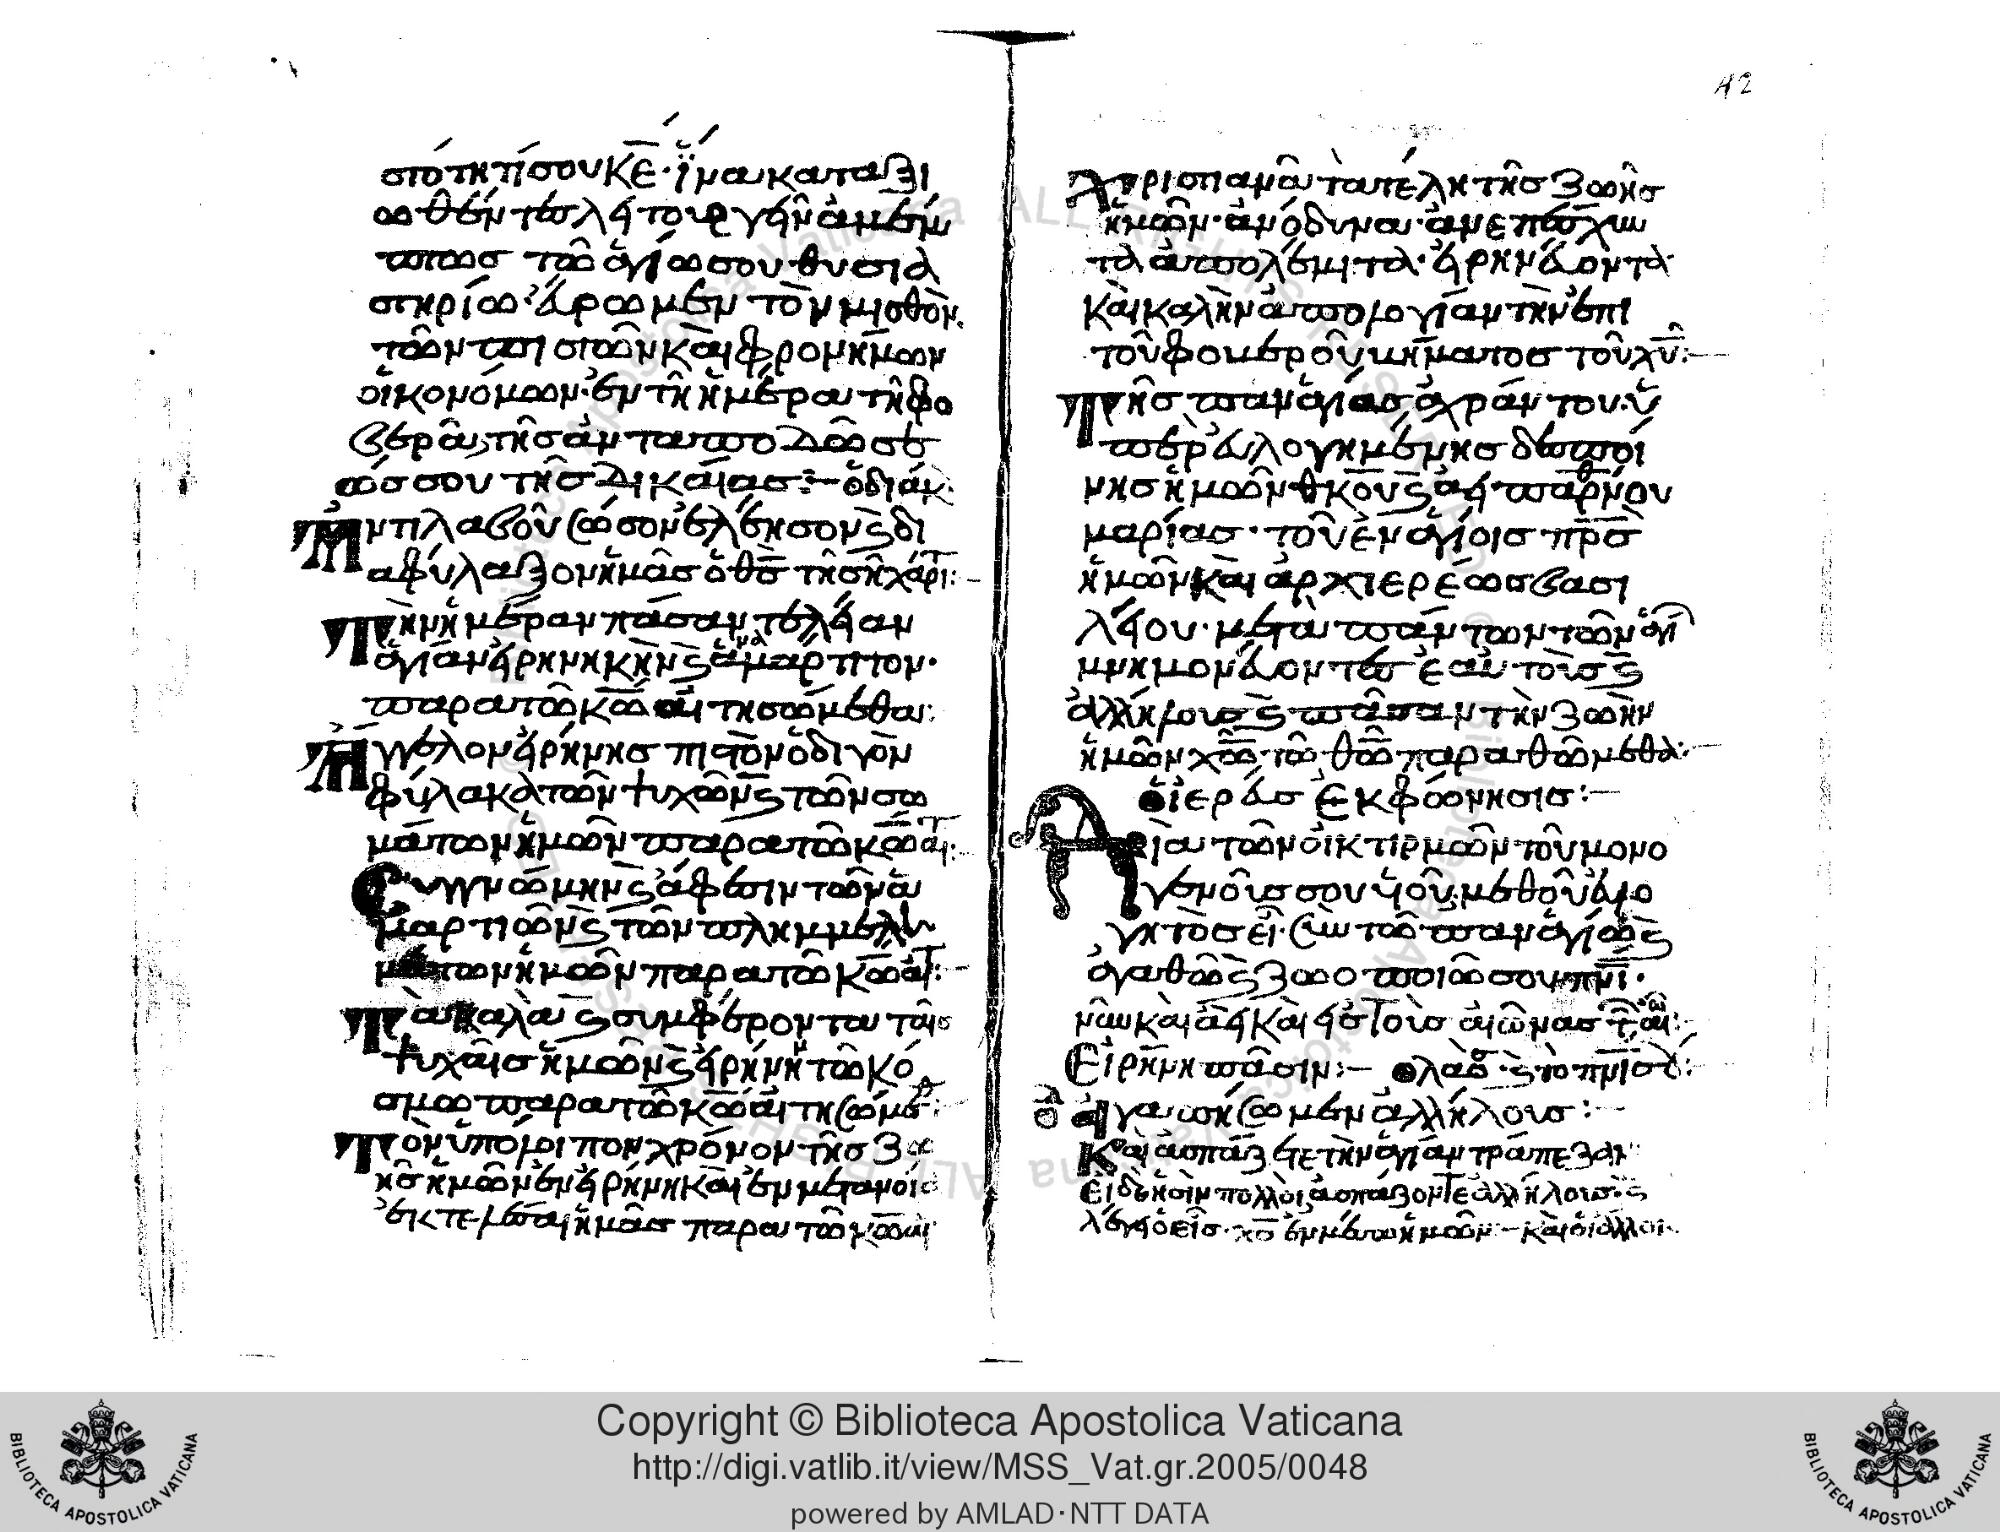 στότητί σου κε̄· ἵνα καταξι
ωθέντες λειτουργεῖν ἀμέμ
πτως τῶ ἁγίω σου θυσια
στηρίω· εὕρωμεν τὸν μισθὸν
τῶν πιστῶν καὶ φρονήμων
οἰκονόμων· ἐν τῆ ἡμέρα τῆ φο
βερᾶ τῆς ἀνταποδώσε
ώς σου τῆς δικαίας:– ὁ διάκ
Ἀντιλαβοῦ σῶσον ἐλέησον ϗ δι
αφύλαξον ἡμᾶς ὁ θς̄ τῆ σῆ χάριτ:–
Τὴν ἡμέραν πᾶσαν τελείαν
ἁγίαν εἰρηνηκὴν ϗ ἀναμάρτιτον·
παρα τοῦ κῡ αἰτησώμεθα:
Ἄγγελον εἰρήνης πιστὸν ὁδιγὸν
φύλακα τῶν ψυχῶν ϗ τῶν σω
μάτων ἡμῶν παρα τοῦ κῡ αἰτ:–
Συγγνώμην ϗ ἄφεσιν τῶν ἁ
μαρτιῶν ϗ τῶν πλημμελη
μάτων ἡμῶν παρα τοῦ κῡ αἰτ:–
Τὰ καλὰ ϗ συμφέροντα ταῖς
ψυχαῖς ἡμῶν ϗ εἰρήνην τῶ κό
σμω παρα τοῦ κῡ αἰτησώμεθ:
Τὸν ὑπόλοιπον χρόνον τῆς ζω
ῆς ἡμῶν ἐν εἰρήνη καὶ ἐν μετανοία
ἐκτελέσαι ἡμᾶς παρα τοῦ κῡ αἰ
42
Χριστιανὰ τὰ τέλη τῆς ζωῆς
ἡμῶν· ἀνόδυνα· ἀνεπαίσχυν
τα ἀπολέμιτα· εἰρηνεύοντα·
καὶ καλὴν ἀπολογίαν τὴν ἐπὶ
τοῦ φοβεροῦ βήματος τοῦ χῡ:–
Τῆς παναγίας ἀχράντου· ὑ
περευλογημένης δεσποί
νης ἡμῶν θκου ϗ ἀεὶ παρθένου
μαρίας· τοῦ ἐν ἁγίοις πρ̄ς
ἡμῶν καὶ ἀρχιερέως βασι
λείου· μετα πάντων τῶν ἁγί
μνημονεύοντες ἑαυτοὺς ϗ
ἀλλήλους ϗ πᾶσαν τὴν ζωὴν
ἡμῶν χῶ τῶ θῶ παραθώμεθα:–
ὁ ἱερεὺς ἐκφώνησις:–
Διὰ τῶν οἰκτιρμῶν τοῦ μονο
γενοῦς σου υἱοῦ· μεθ οὗ εὐλο
γητὸς εἶ· σὺν τῶ παναγίω ϗ
ἀγαθῶ ϗ ζωοποιῶ σου πνῑ·
νῦν καὶ ἀεὶ καὶ εἰς τοὺς αἰῶνας τῶν αἰ:
Εἰρήνη πᾶσιν:– ὁ λαὸς· ϗ τῶ πνῑ σου:
ὁ δ Ἀγαπήσωμεν ἀλλήλους:–
Καὶ ἀσπάζεται τὴν ἁγίαν τράπεζαν
εἰ δὲ εἰσὶν πολλοὶ ἀσπάζονται ἀλλήλους· ϗ
λέγει ὁ εἷς· χς̄ ἐν μέσω ἡμῶν:– καὶ οἱ ἄλλοι
Copyright © Biblioteca Apostolica Vaticana
http://digi.vatlib.it/view/MSS_Vat.gr.2005/0048
powered by AMLAD·NTT DATA
BIBLIOTECA APOSTOLICA VATICANA
BIBLIOTECA APOSTOLICA VATICANA